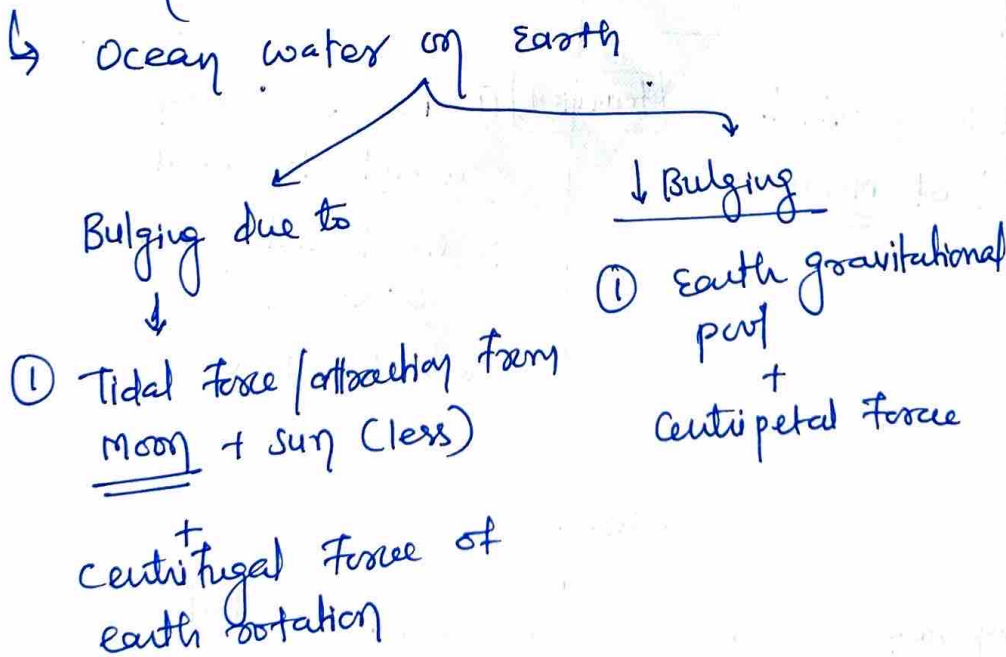 ↳ Ocean water on Earth
Bulging due to
↓
① Tidal Force / attraction from
Moon + Sun (less)
+
Centrifugal Force of
earth rotation
↓ Bulging
① Earth gravitational
pul
+
Centripetal Force